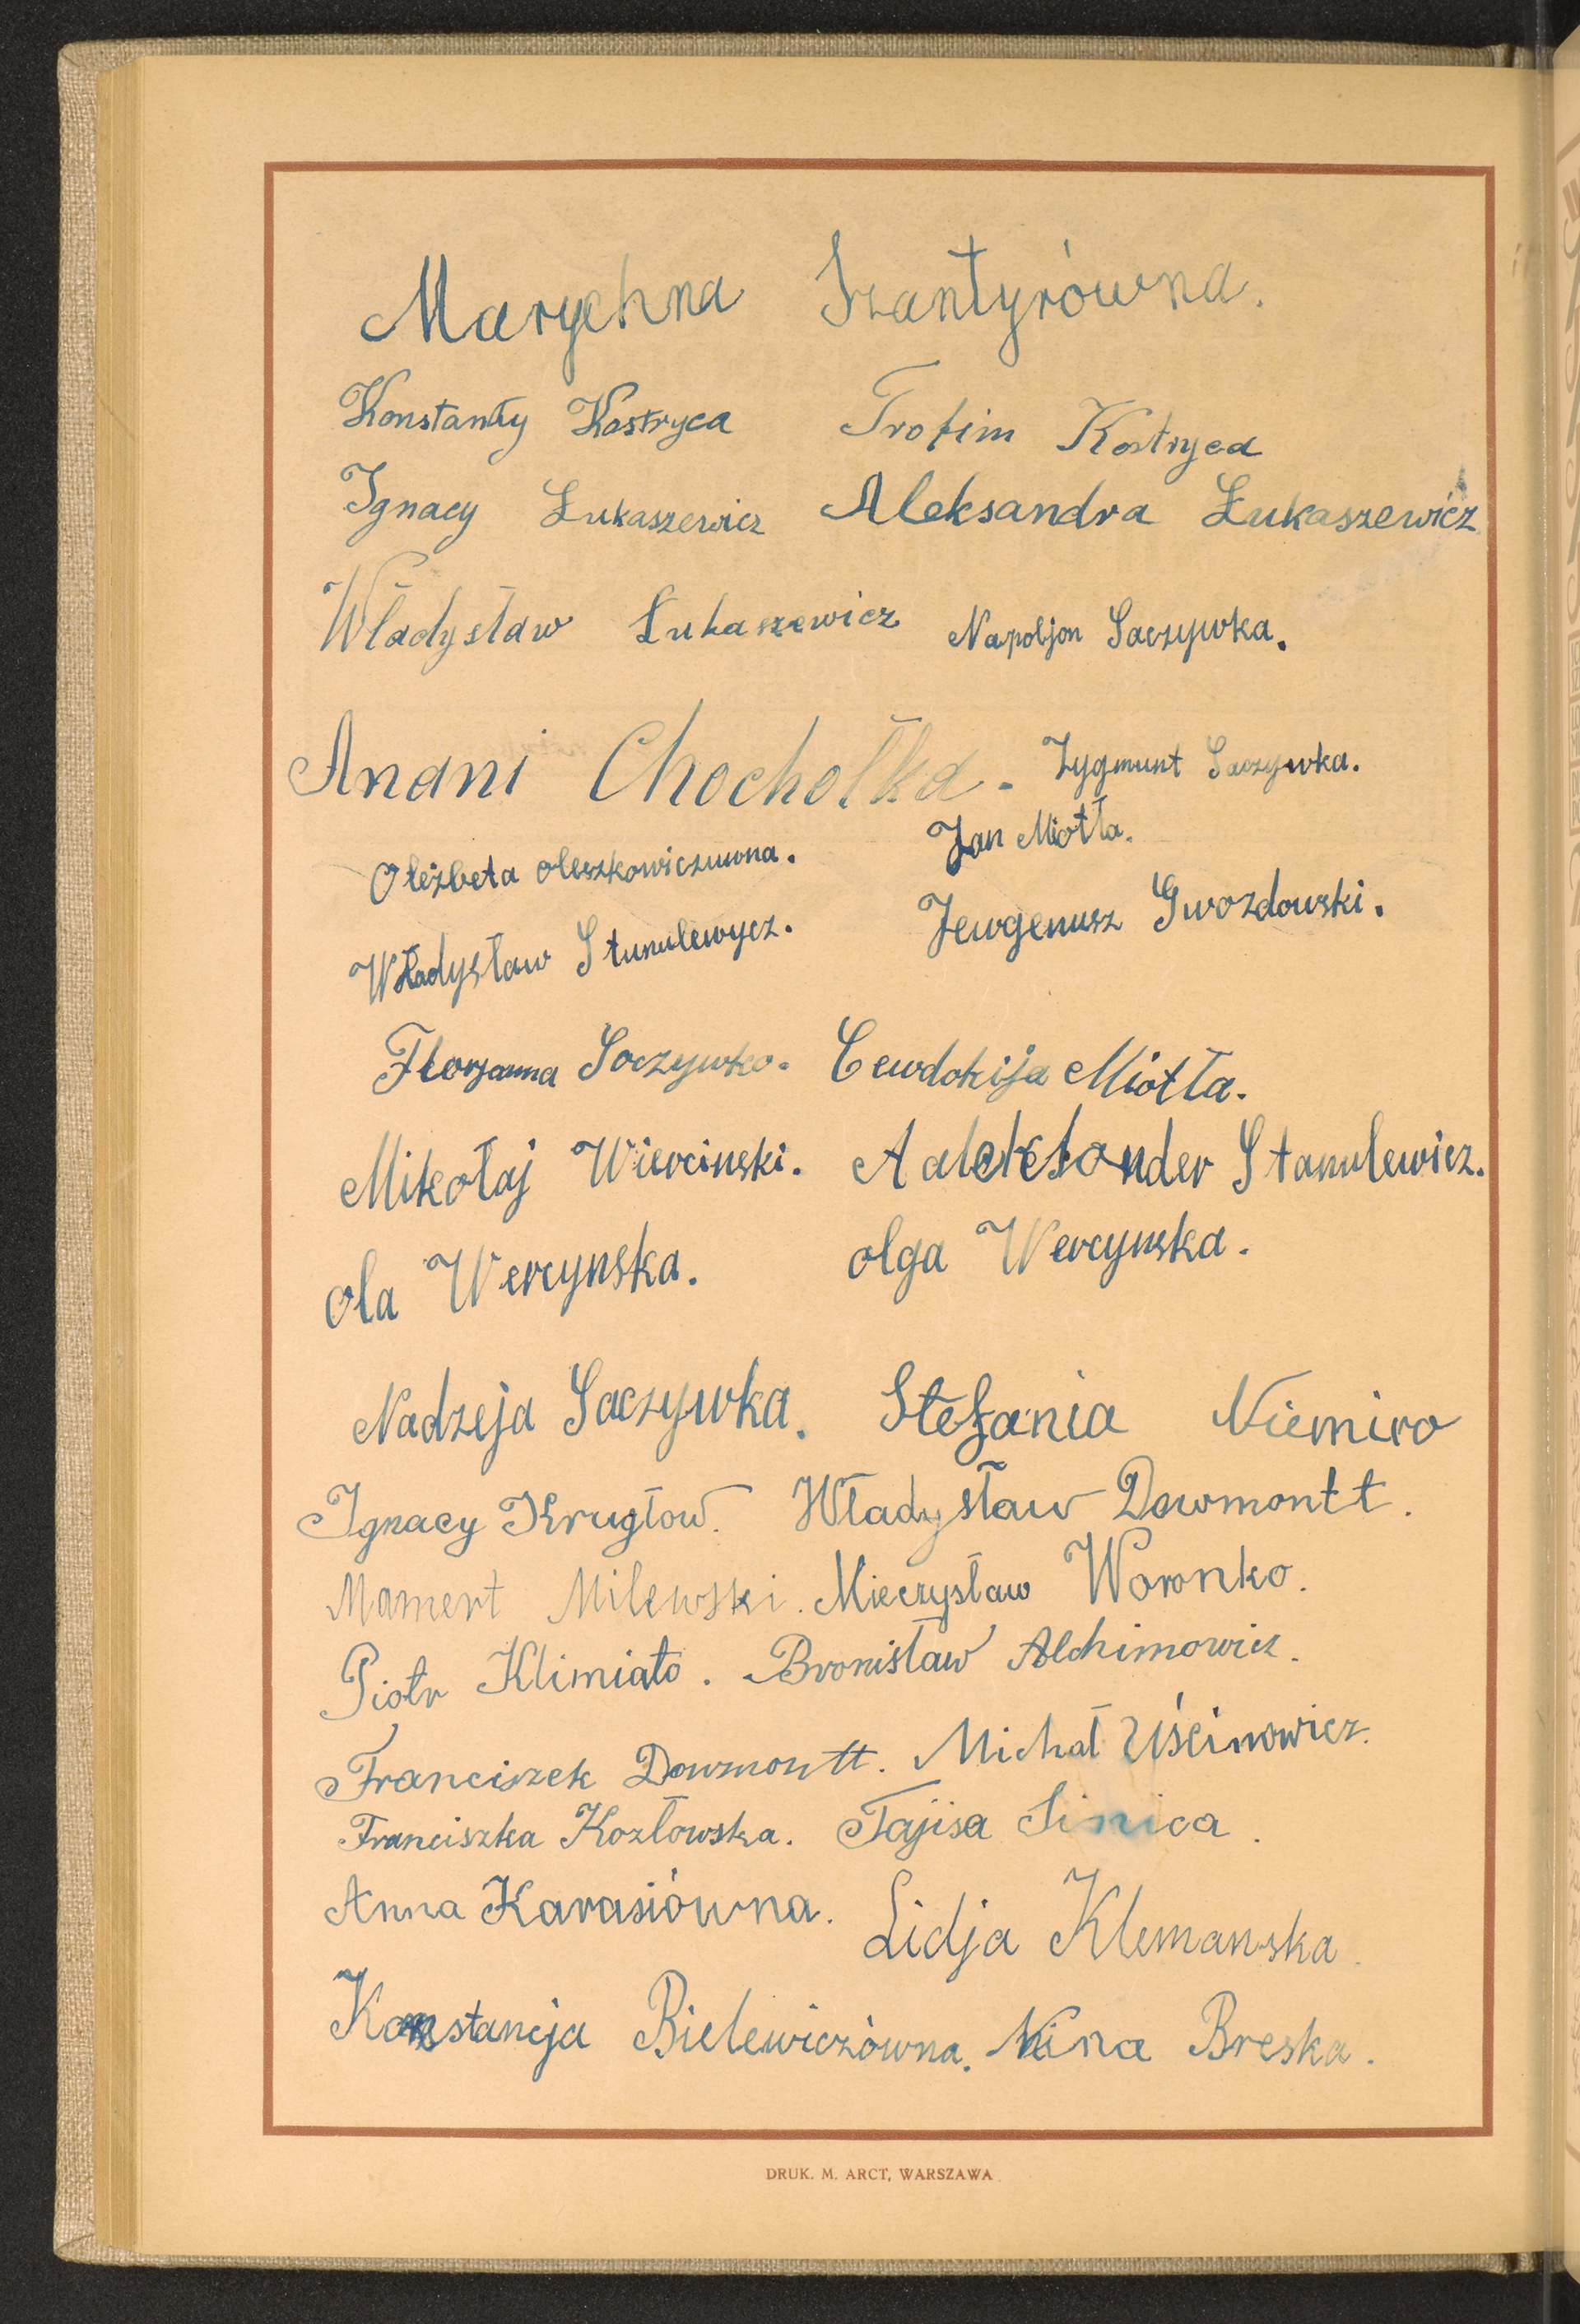 Marychna Szantyrówna.
Konstanty Kostryca Trofim Kostryca
Ignacy Łukaszewicz Aleksandra Łukaszewicz
Władysław Łukaszewicz Napoljon Saczywka.
Anani Chochołka. Zygmunt Saczywka.
Oleżbeta Oleszkowiczuwna. Jan Miotła.
Władysław Stunulewycz. Jewgenusz Gwozdowski.
Florjanna Soczywko. Eewdokija Miotła.
Mikołaj Wiercinski. Aaleksander Stanulewicz.
Ola Wercynska. Olga Wercynska.
Nadzeja Saczywka. Stefania Niemiro
Ignacy Krugłow. Władysław Dowmontt.
Mamert Milewski. Mieczysław Woronko.
Piotr Klimiato. Bronisław Alchimowicz.
Franciszek Dowmontt. Michał Uścinowicz.
Franciszka Kozłowska. Tajisa Sinica.
Anna Karasiówna. Lidja Klemanska.
Konstancja Bielewiczówna. Nina Breska.
DRUK. M. ARCT, WARSZAWA